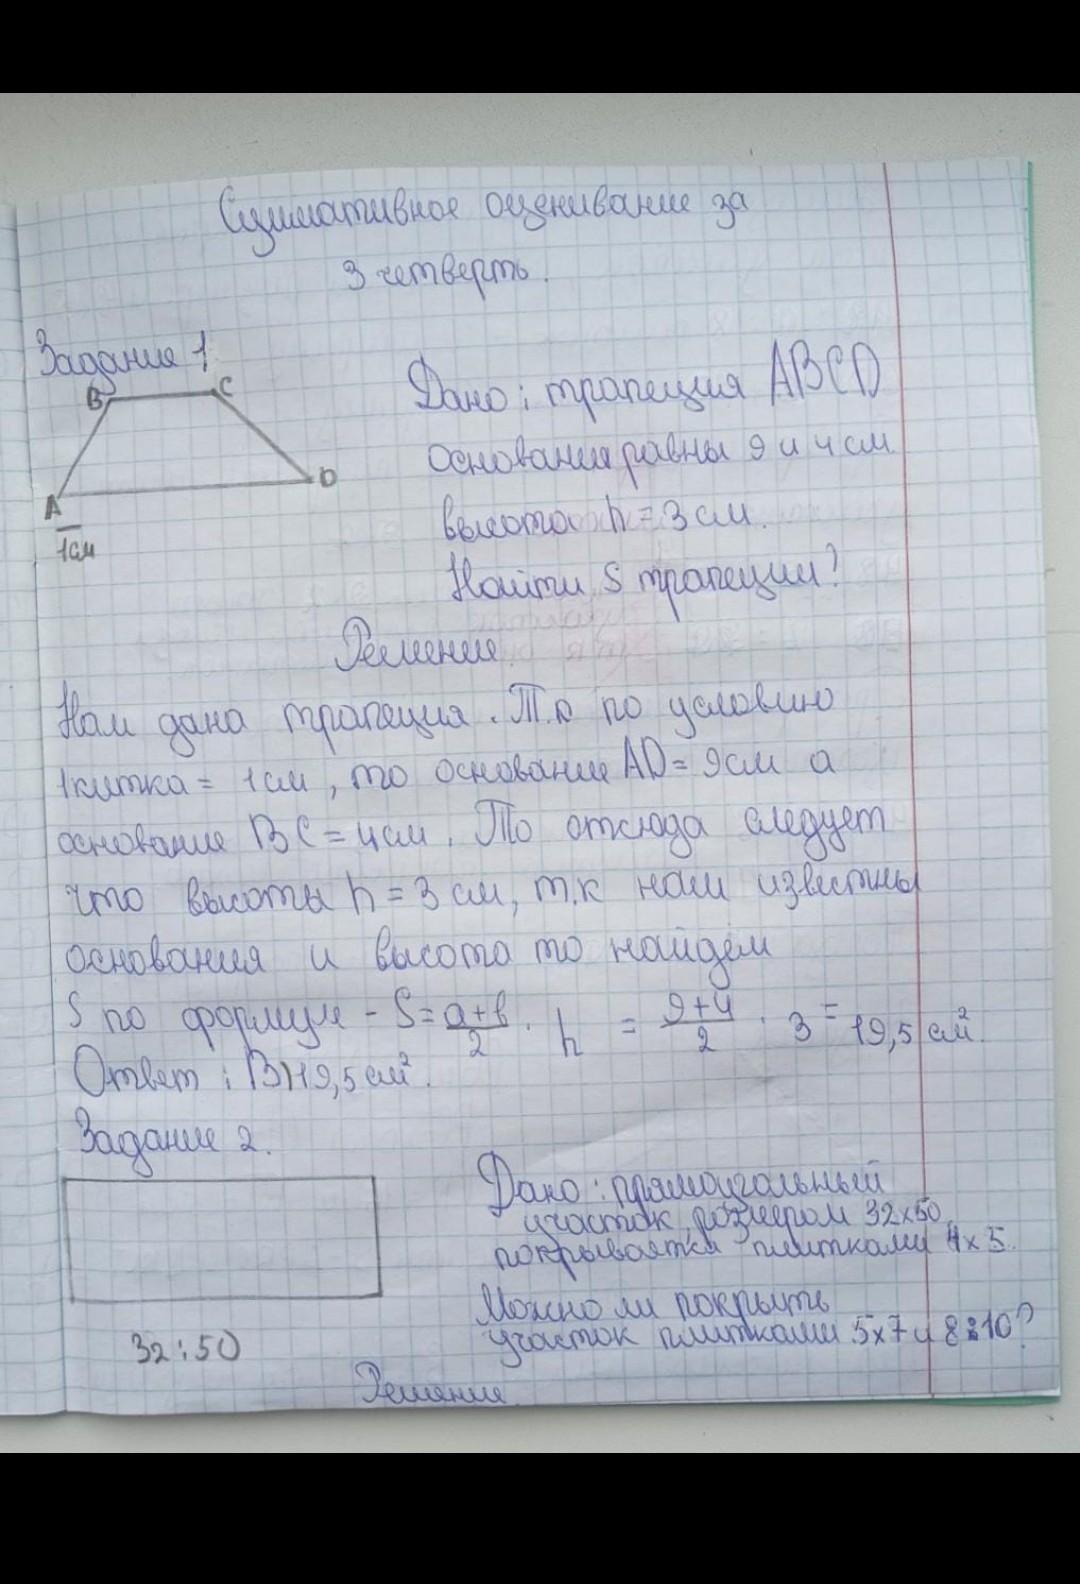 Суммативное оценивание за
3 четверть.
Задание 1
B C
A D
1см
Дано: трапеция ABCD
основания равны 9 и 4 см.
высота h = 3 см.
Найти S трапеции?
Решение.
Нам дана трапеция. Т.к по условию
1 клитка = 1 см, то основание AD = 9см а
основание BC = 4см. То отсюда следует
что высоты h = 3 см, т.к нам известны
основания и высота то найдём
S по формуле - S = a+b/2 · h = 9+4/2 · 3 = 19,5 см²
Ответ: B) 19,5 см².
Задание 2.
Дано: прямоугольный
участок, размером 32x50,
покрывается плитками 4x5.
Можно ли покрыть
участок плитками 5x7 и 8x10?
32:50
Решение.